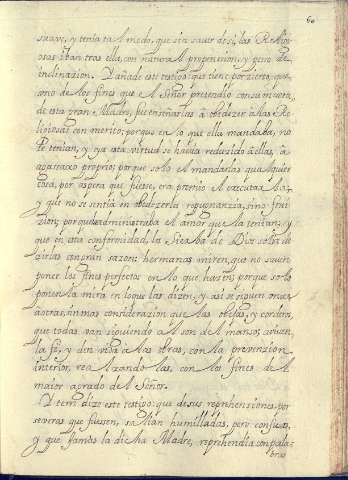 60
suave, y tenia tal modo, que sin sauer de si, las Religi-
osas iban tras ella, con natural propension, y peso de
inclinazion. Y añade este testigo que tiene por zierto, que
uno de los fines que el Señor pretendio con su em
de esta gran Madre, fue enseñarlas a obedezer a las Re
ligiosas con merito; porque en lo que ella mandaba, no
le tenian, y eya esta virtud se hauia reduzido a ellas, a
agasaxo proprio; porque solo el mandarlas qualquier
cosa, por aspera que fuese, era premio el executarlo:
y que no se sentia en obedezerla repugnanzia, sino frui
zion; porque le administraba el amor que la tenian; y
que en esta conformidad, la Sierba de Dios solia de
zirlas con gran sazon: hermanas miren, que no sauen
poner los fines perfectos en lo que hazen; porque solo
ponen la mira en lo que las dizen, y asi se siguen unas
a otras, sin mas consideracion que las obejas, y corderos,
que todas van siguiendo al son del manso; aviuen
la fe, y den vida a las obras, con la prevencion
interior, realzandolas, con los fines del
maior agrado del Señor.
Y tem dize este testigo: que de sus reprehensiones, por
seueras que fuesen, salian humilladas, pero confusas,
y que jamas la dicha Madre, reprehendia con pala-
bras